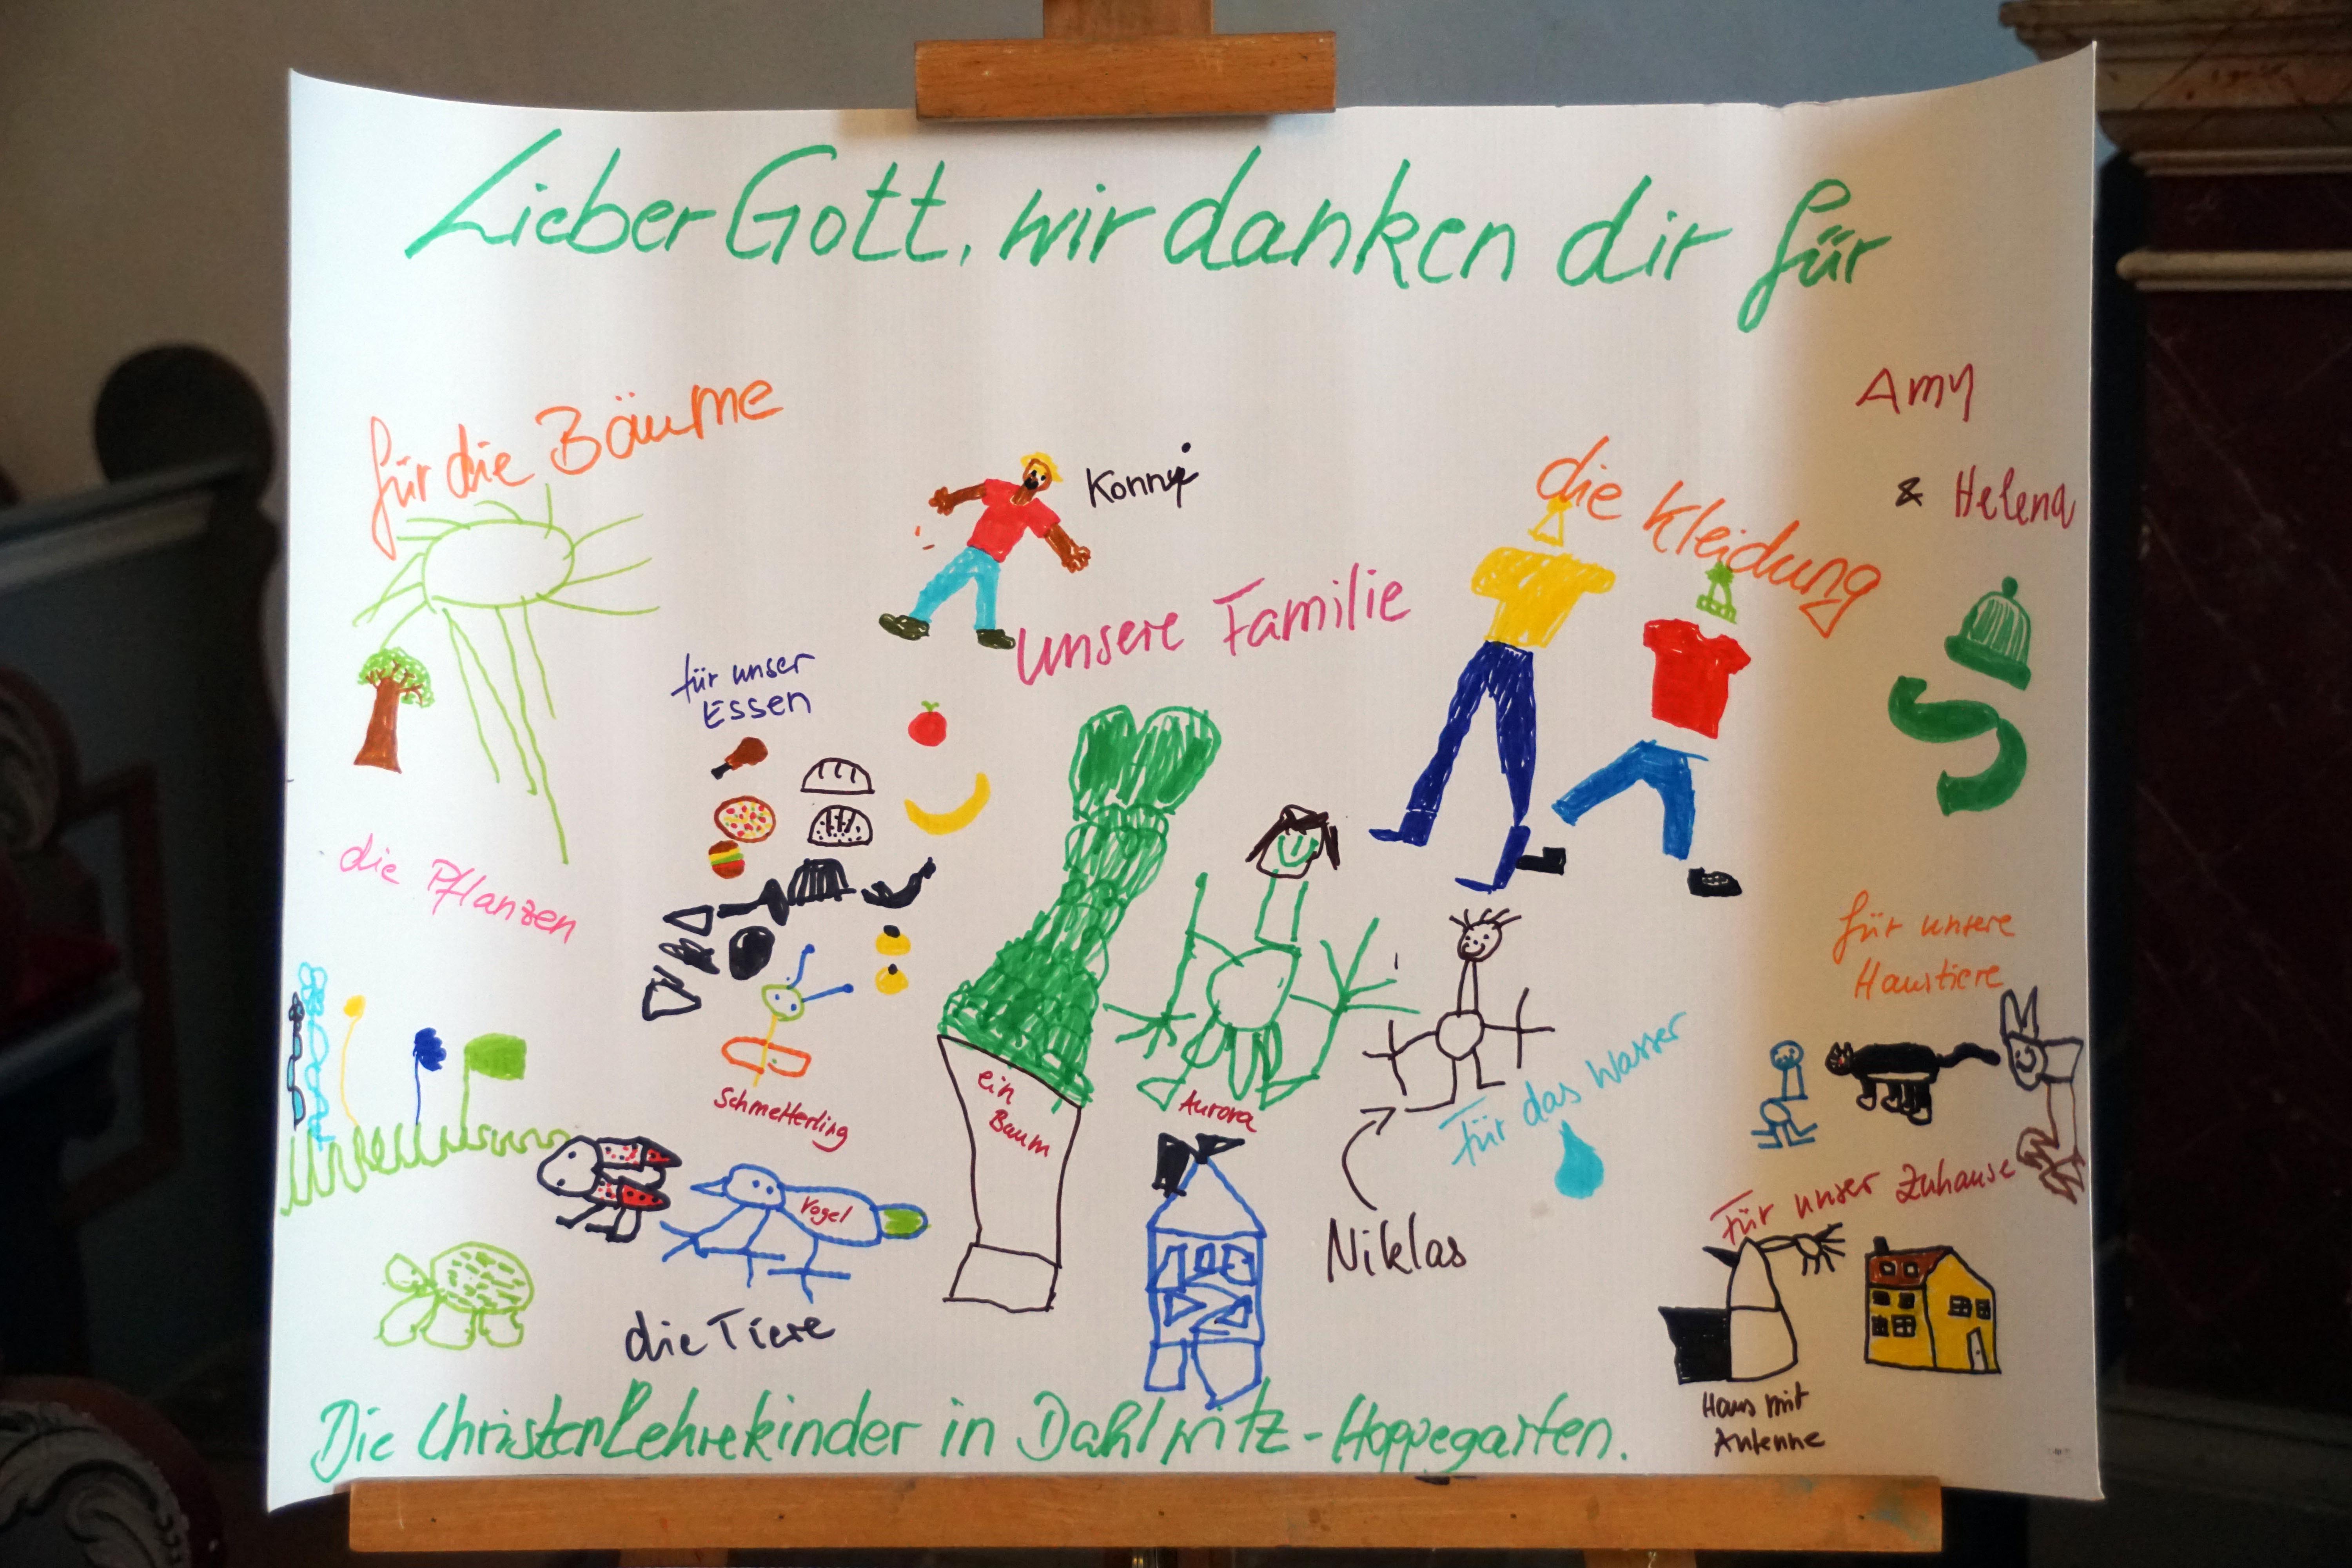 Lieber Gott, wir danken dir für
Amy
& Helena
für die Bäume
Konny
die Kleidung
unsere Familie
für unser
Essen
die Pflanzen
für unsere
Haustiere
Für das Wasser
Schmetterling
ein
Baum
Aurora
Vogel
Für unser Zuhause
Niklas
die Tiere
Haus mit
Antenne
Die Christenlehrekinder in Dahlwitz-Hoppegarten.